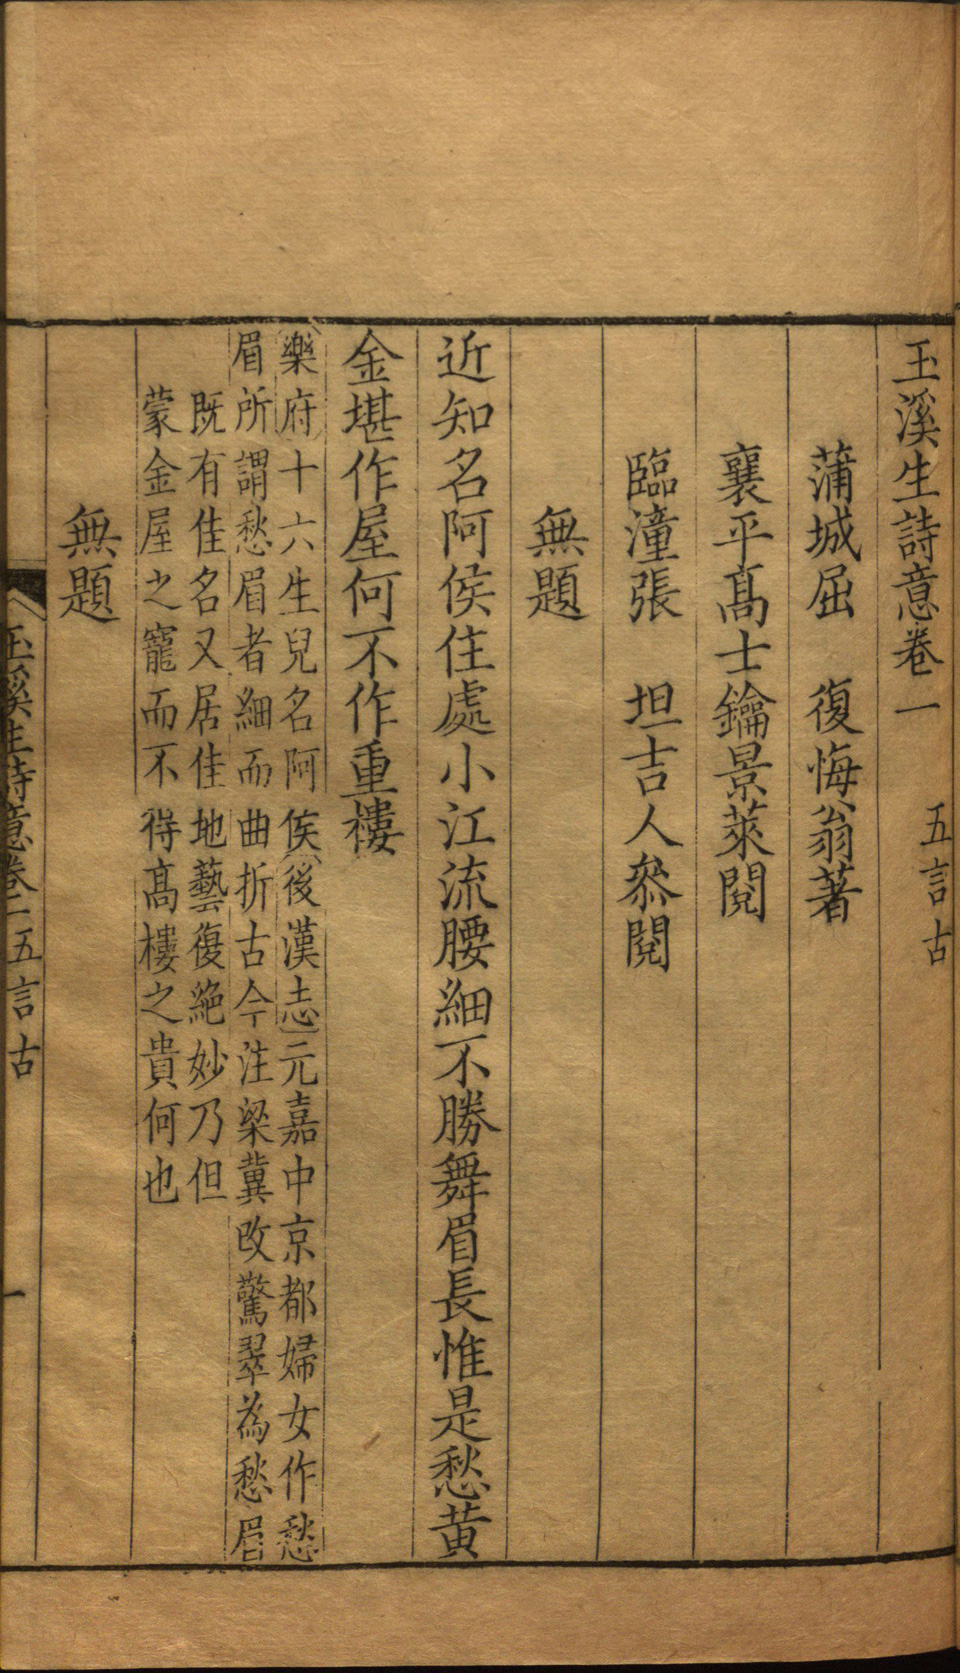 玉溪生詩意卷一
五言古
蒲城屈　復悔翁著
襄平髙士鑰景萊閱
臨潼張　坦吉人叅閱
無題
近知名阿侯住處小江流腰細不勝舞眉長惟是愁黄
金堪作屋何不作重樓
樂府十六生兒名阿侯後漢志元嘉中京都婦女作愁
眉所謂愁眉者細而曲折古今注梁冀改驚翠為愁眉
既有佳名又居佳地藝復絶妙乃但
蒙金屋之寵而不得髙樓之貴何也
無題
玉溪生詩意卷一 五言古 一